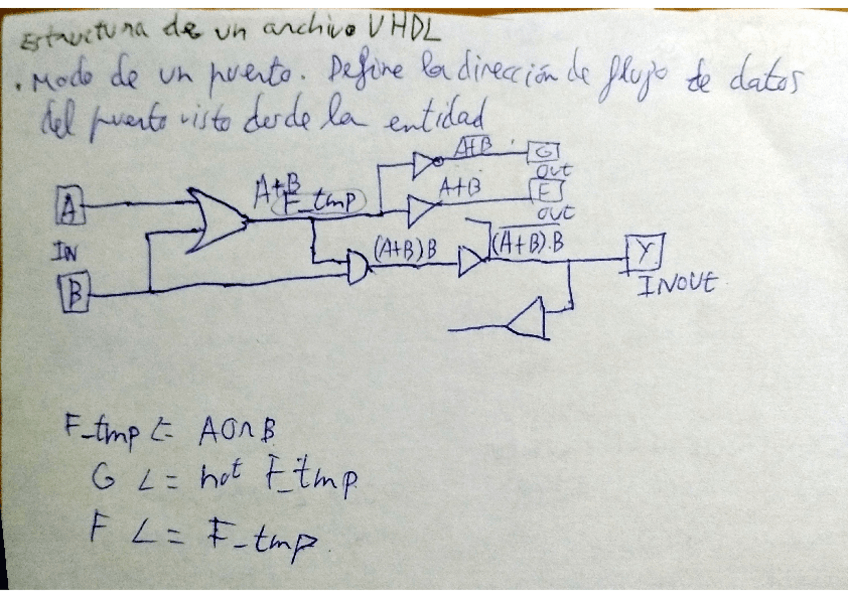 Estructura de un archivo VHDL
. Modo de un puerto. Define la dirección de flujo de datos
del puerto visto desde la entidad
A+B G
OUT
A+B F
OUT
A A+B
F_tmp
IN
(A+B)B (A+B).B Y
INOUT
B
F_tmp <= A or B
G <= not F_tmp
F <= F_tmp.